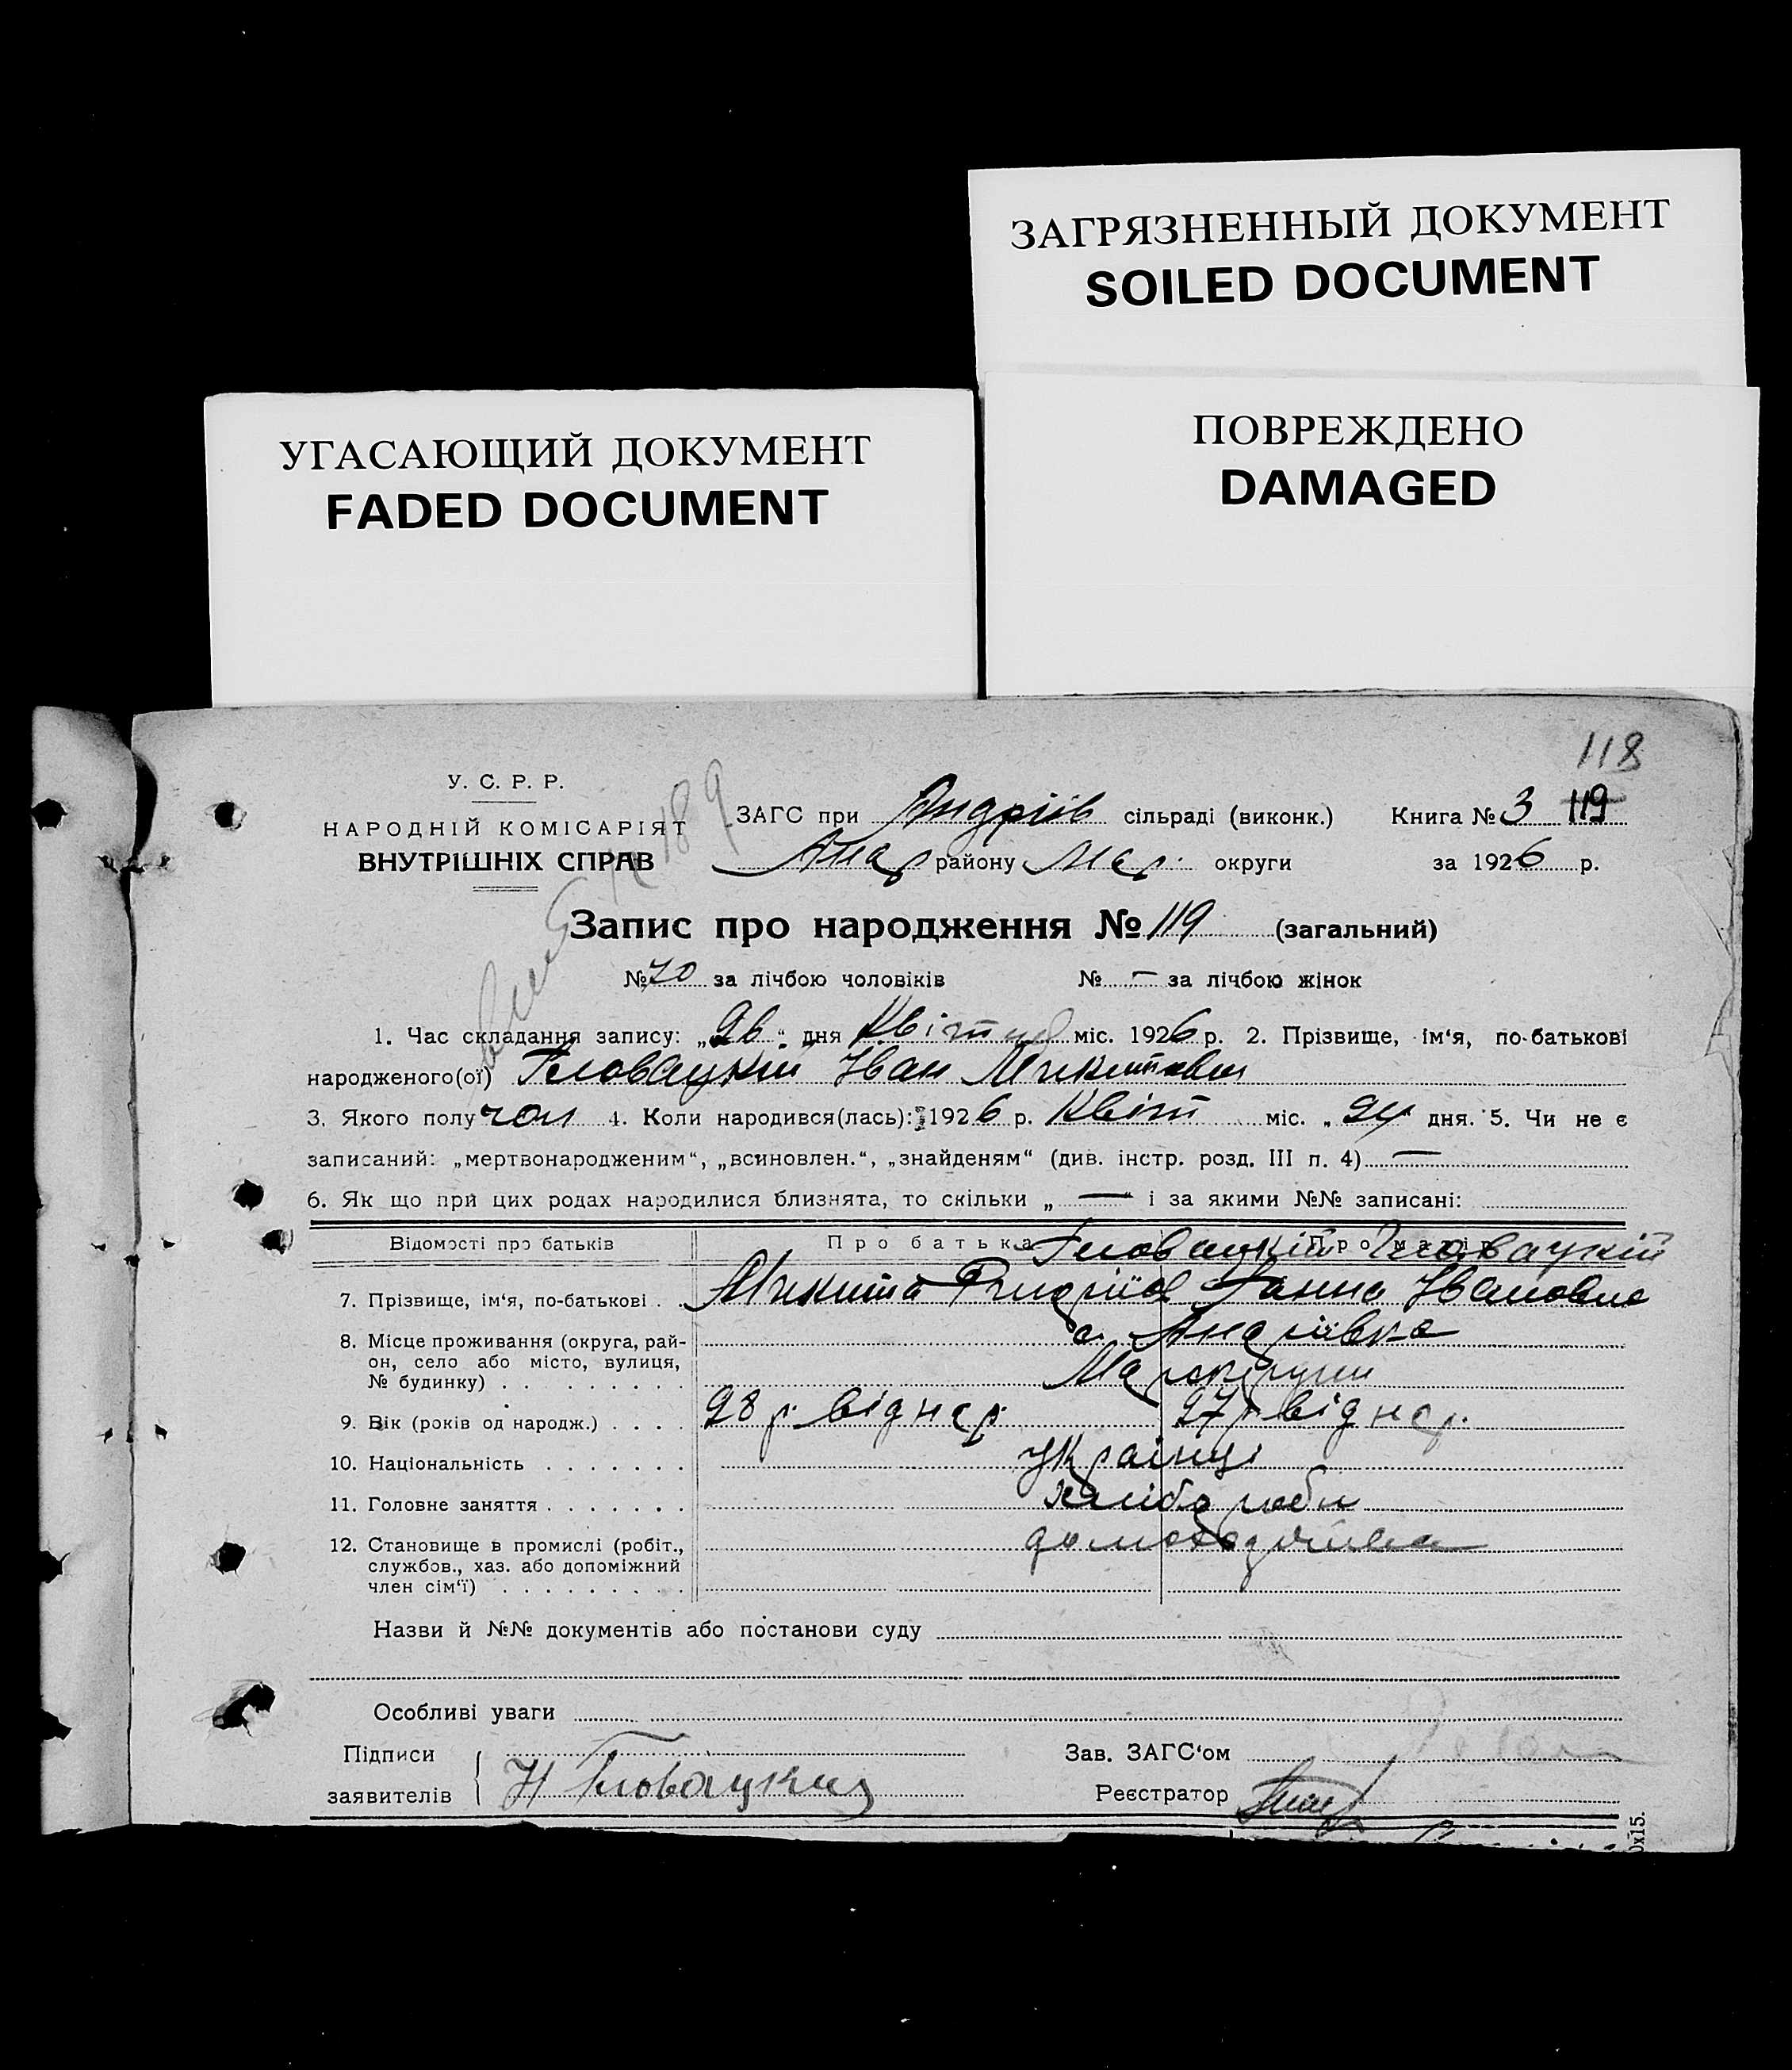 ЗАГРЯЗНЕННЫЙ ДОКУМЕНТ
SOILED DOCUMENT
УГАСАЮЩИЙ ДОКУМЕНТ
FADED DOCUMENT
ПОВРЕЖДЕНО
DAMAGED
118
У. С. Р. Р.
НАРОДНІЙ КОМІСАРІЯТ
ВНУТРІШНІХ СПРАВ
189
ЗАГС при Андріів сільраді (виконк.) Книга № 3 119
Анд району Мар. округи за 1926 р.
Запис про народження № 119 (загальний)
№ 70 за лічбою чоловіків № — за лічбою жінок
1. Час складання запису: „26“ дня Квітня міс. 1926 р. 2. Прізвище, ім‘я, по-батькові
народженого(ої) Головацкий Іван Микитович
3. Якого полу чол 4. Коли народився(лась): 1926 р. Квіт міс. „24“ дня. 5. Чи не є
записаний: „мертвонародженим“, „всиновлен.“, „знайденям“ (див. інстр. розд. III п. 4) —
6. Як що при цих родах народилися близнята, то скільки „—“ і за якими №№ записані:
Відомості про батьків Про батька Про матір
Головацкій Головацкій
7. Прізвище, ім‘я, по-батькові . . Микита Андріів Ганна Івановна
8. Місце проживання (округа, рай-
он, село або місто, вулиця,
№ будинку) . . . . . . . . .
с. Андріівка
Маріюпіл
9. Вік (років од народж.) . . . . 28 р. від нар. 27 р від нар.
10. Національність . . . . . . . Украінці
11. Головне заняття . . . . . . . хлібороби
12. Становище в промислі (робіт.,
службов., хаз. або допоміжний
член сім‘ї) . . . . . . . . . .
Назви й №№ документів або постанови суду
Особливі уваги
Підписи
заявителів Н Головацкий
Зав. ЗАГС‘ом
Реєстратор
0х15.